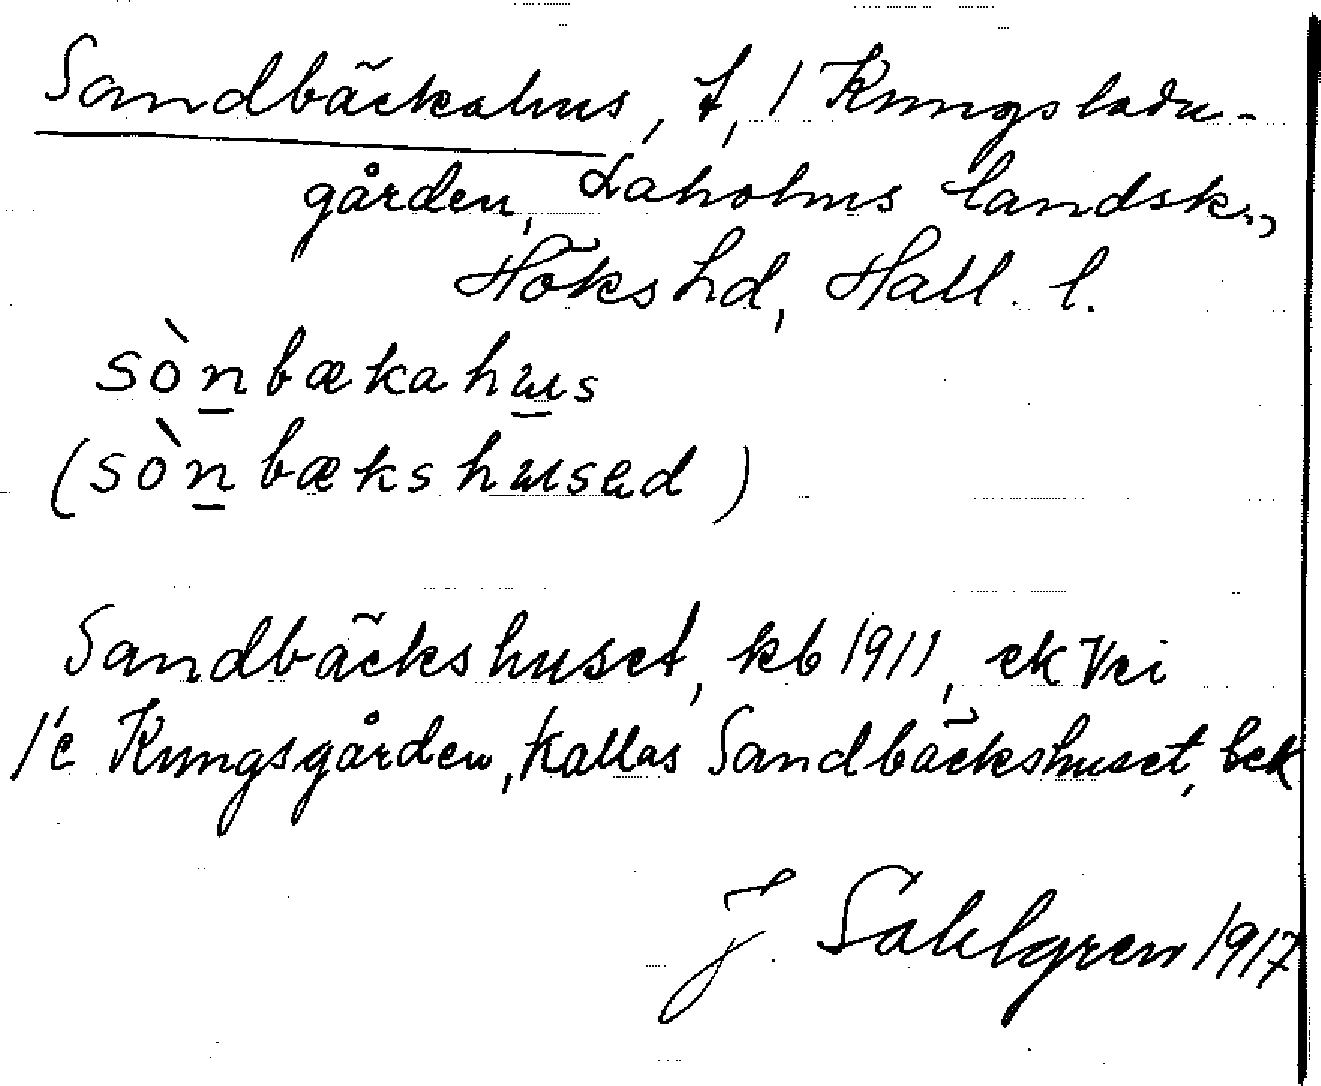 Sandbäckahus, t, 1 Kungsladu-
gården, Laholms landsk.,
Höks hd, Hall. l.
sònbækahus
(sònbækshused)
Sandbäckshuset, kb 1911, ek Vei
1/2 Kungsgården, kallas Sandbäckshuset, bek
J. Sahlgren 1917